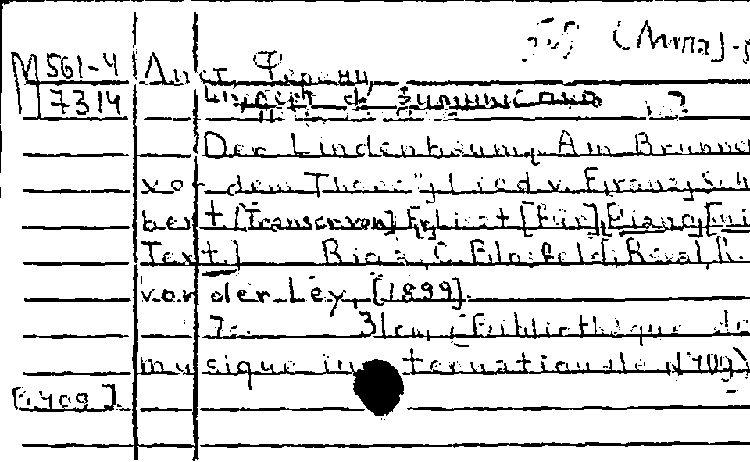 М 561-4 Лист, Ференц
7314
Der Lindenbaum, „Am Brunne
vor dem Thore", Lied v. Franz Sch
bert [Transcr. von] Fr. Liszt [für] Piano [mit
Text.] Riga, C. Blosfeld; Reval, K.
von der Ley, [1899].
7 c. 31 cm (Bibliothèque de
musique internationale N 409)
[409]